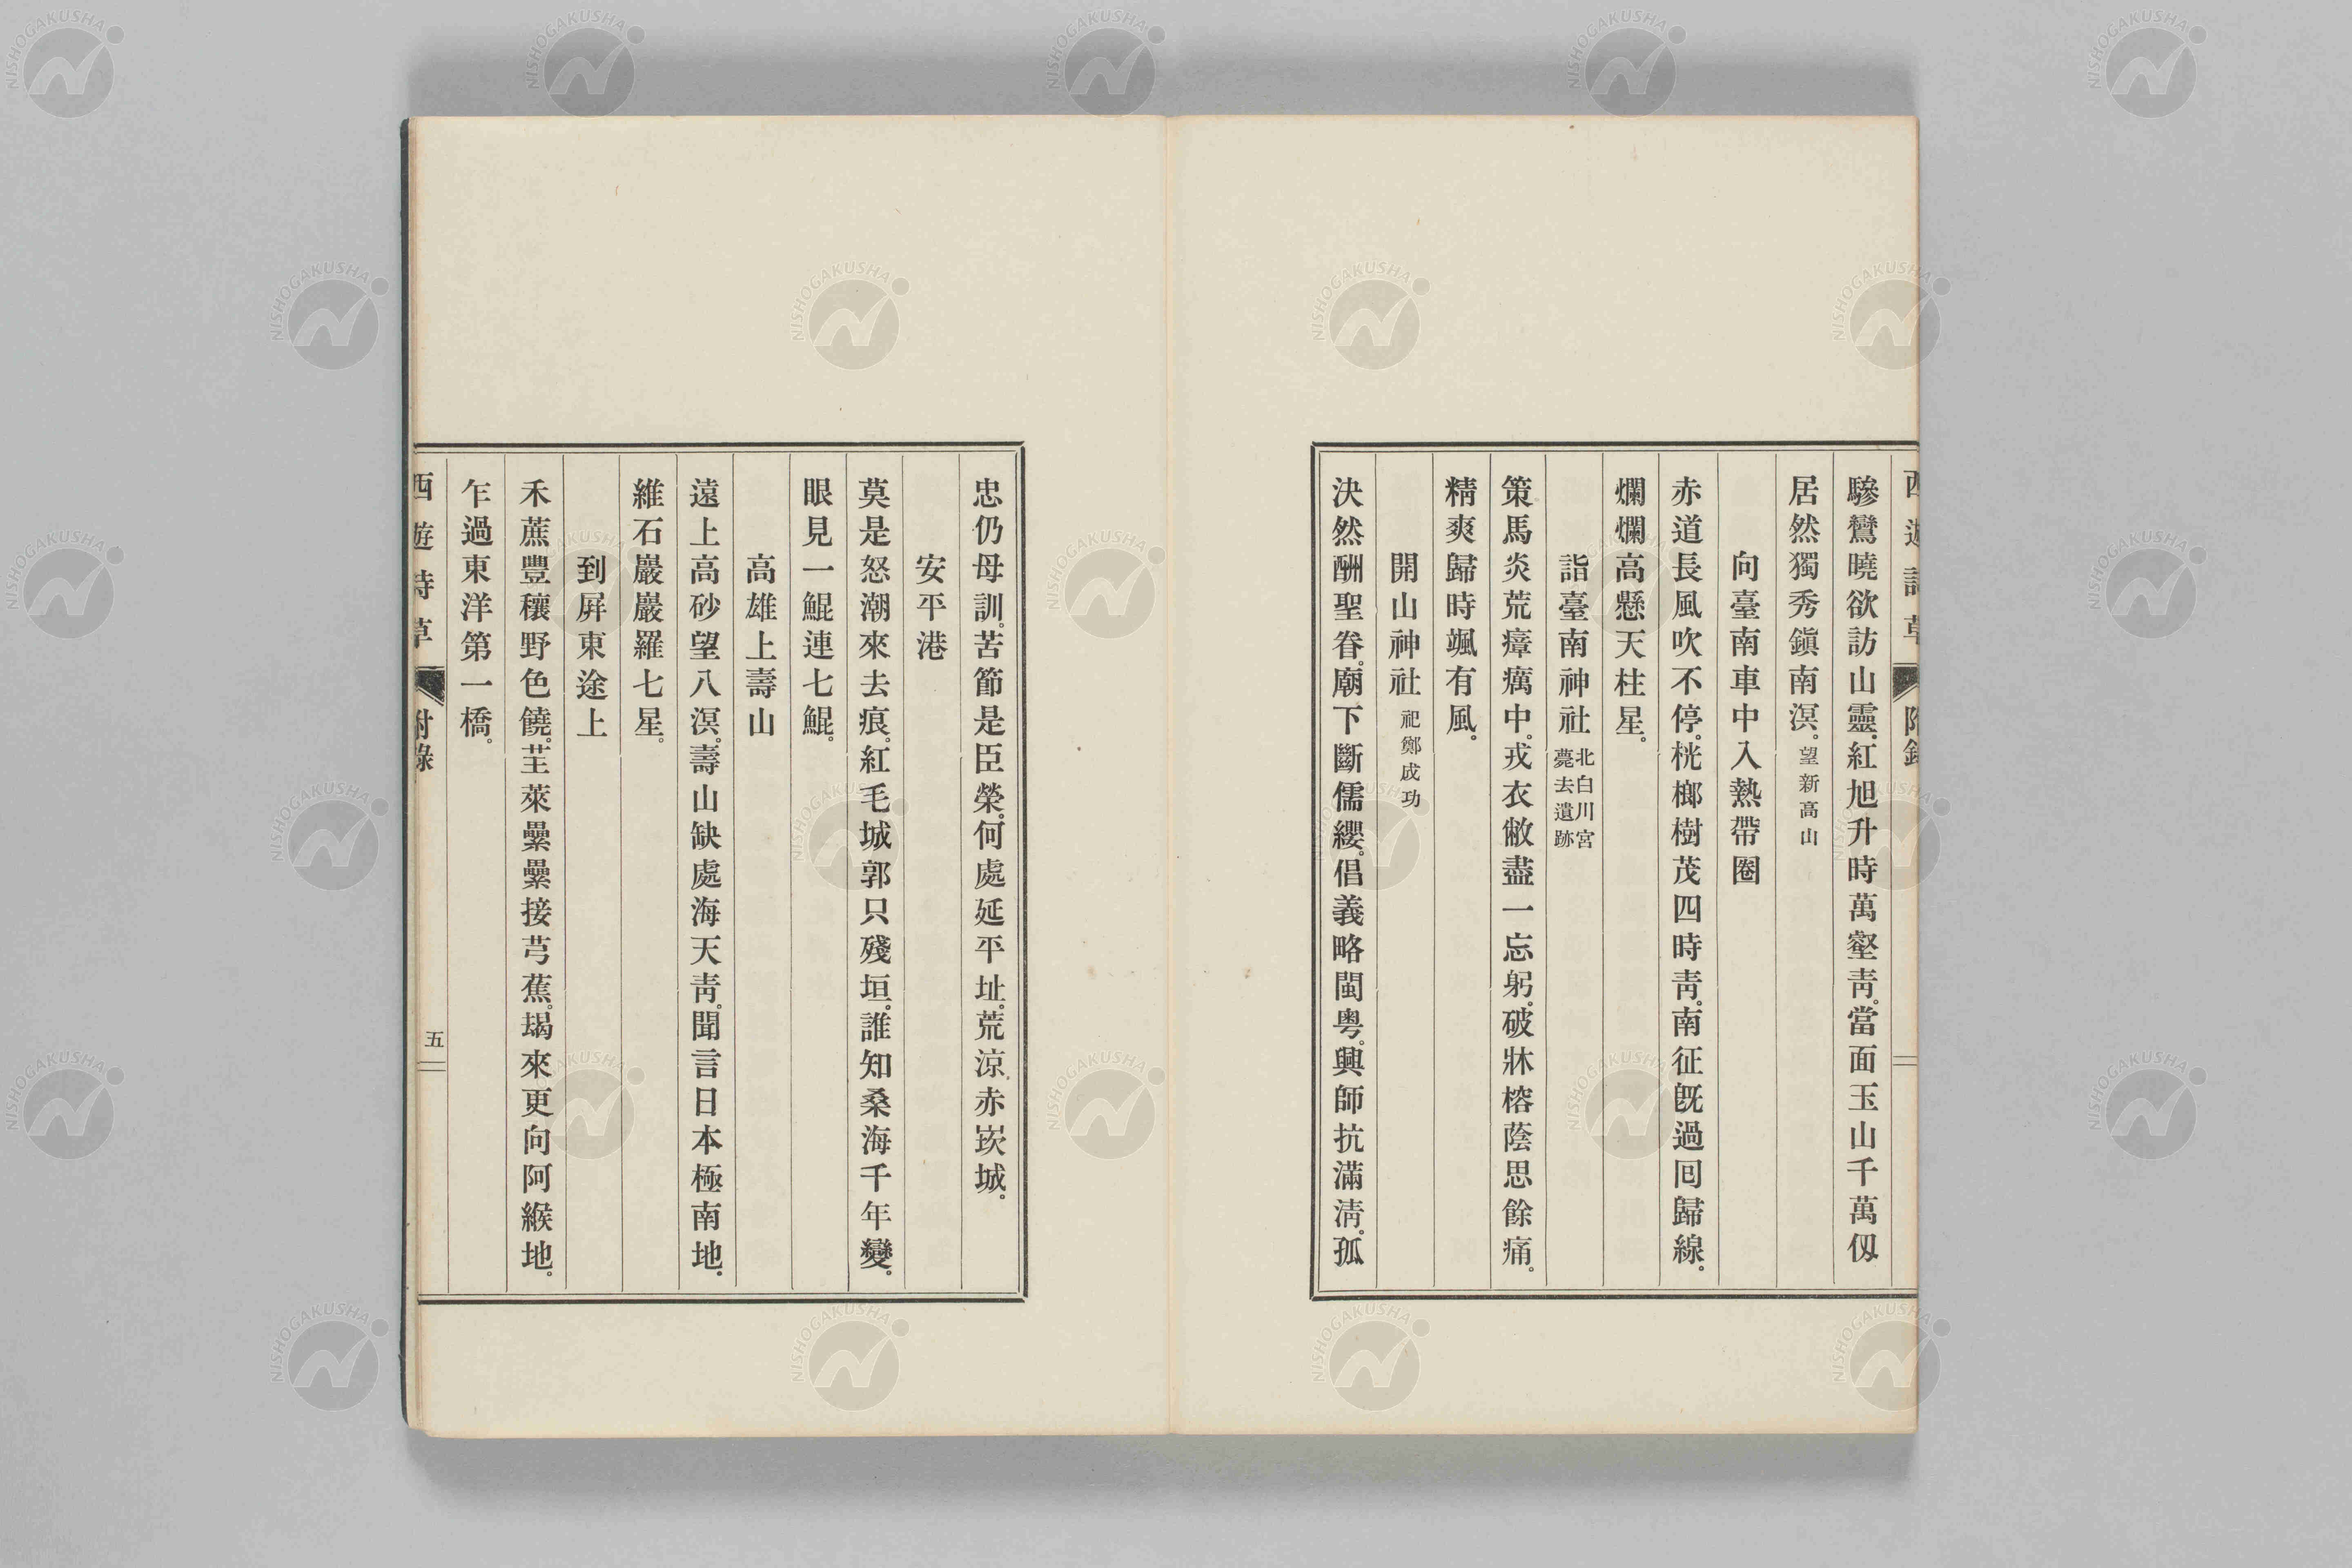 西遊詩草 附錄
驂鸞曉欲訪山靈。紅旭升時萬壑靑。當面玉山千萬仭
居然獨秀鎭南溟。望新高山
向臺南車中入熱帶圈
赤道長風吹不停。桄榔樹茂四時靑。南征旣過回歸線。
爛爛高懸天柱星。
詣臺南神社 北白川宮薨去遺跡
策馬炎荒瘴癘中。戎衣敝盡一忘躬。破牀榕蔭思餘痛。
精爽歸時颯有風。
開山神社 祀鄭成功
決然酬聖眷。廟下斷儒纓。倡義略閩粤。興師抗滿淸。孤
忠仍母訓。苦節是臣榮。何處延平址。荒涼赤崁城。
安平港
莫是怒潮來去痕。紅毛城郭只殘垣。誰知桑海千年變。
眼見一鯤連七鯤。
高雄上壽山
遠上高砂望八溟。壽山缺處海天靑。聞言日本極南地。
維石巖巖羅七星。
到屛東途上
禾蔗豐穰野色饒。芏萊纍纍接芎蕉。朅來更向阿緱地。
乍過東洋第一橋。
西遊詩草 附錄 五
NISHOGAKUSHA